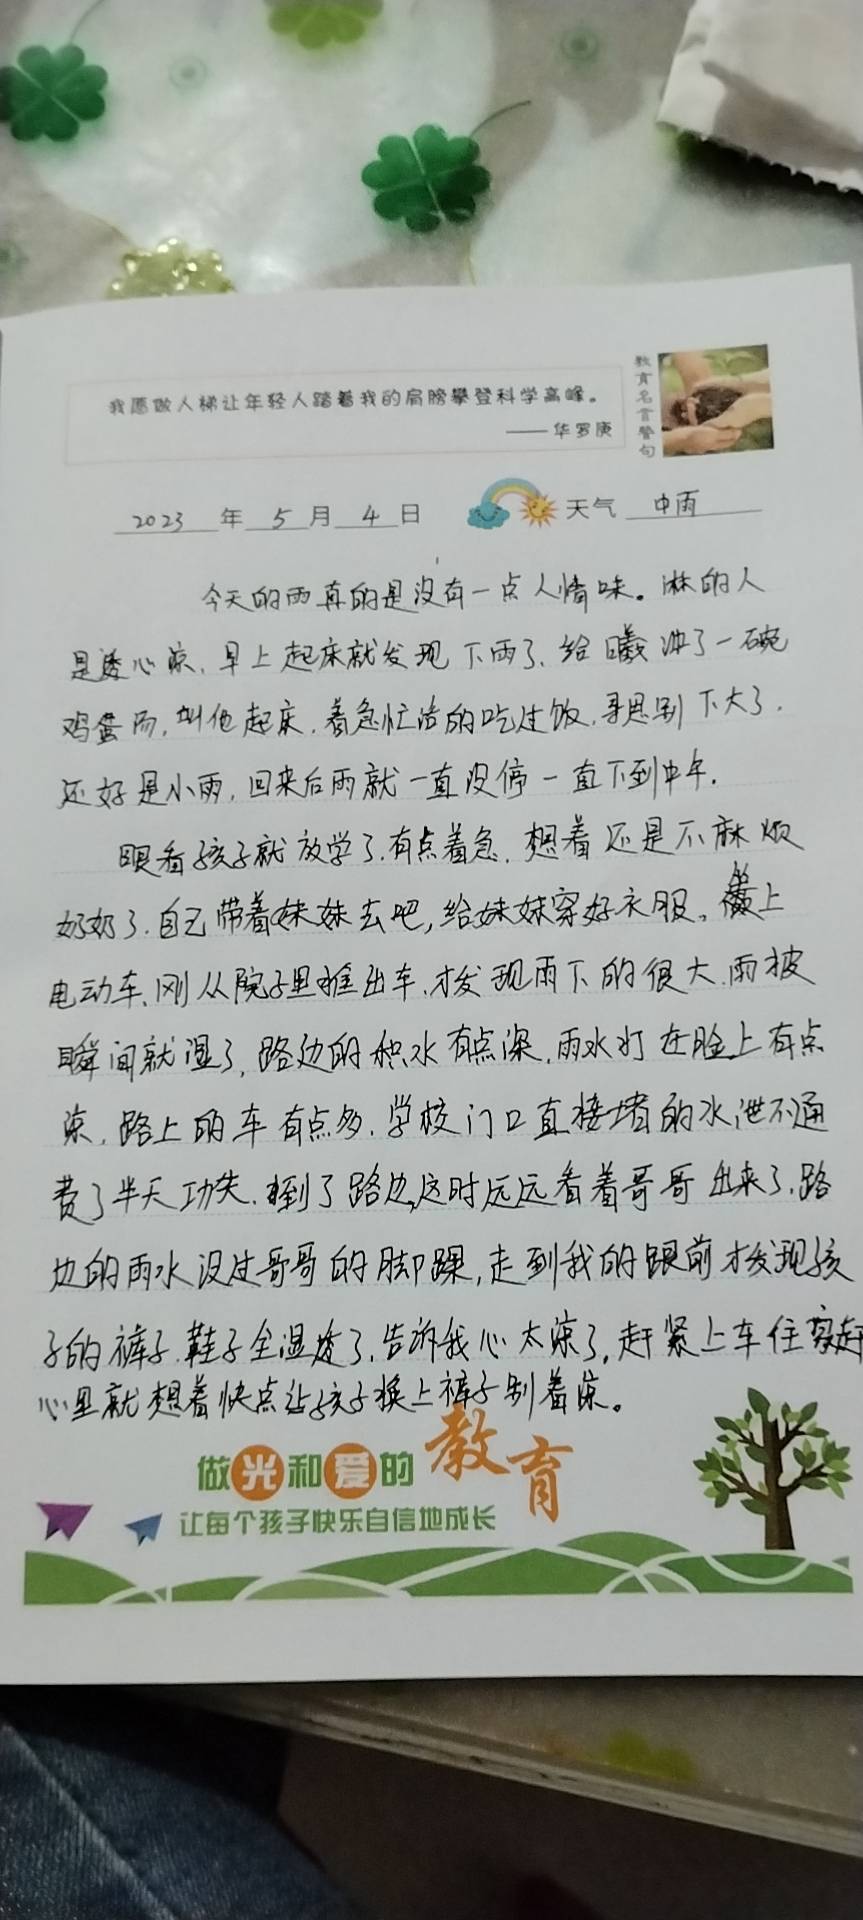 我愿做人梯让年轻人踏着我的肩膀攀登科学高峰。
——华罗庚
教育名言警句
2023年5月4日 天气 中雨
今天的雨真的是没有一点人情味。淋的人
是透心凉,早上起床就发现下雨了,给曦冲了一碗
鸡蛋汤,叫他起床,着急忙活的吃过饭,寻思别下大了,
还好是小雨,回来后雨就一直没停一直下到中午.
眼看孩子就放学了,有点着急,想着还是不麻烦
奶奶了.自己带着妹妹去吧,给妹妹穿好衣服,坐上
电动车,刚从院子里推出车,才发现雨下的很大,雨披
瞬间就湿了,路边的积水有点深,雨水打在脸上有点
凉,路上的车有点多,学校门口直接堵的水泄不通
费了半天功夫,到了路边,这时远远看着哥哥出来了,路
边的雨水没过哥哥的脚踝,走到我的跟前才发现孩
子的裤子.鞋子全湿透了,告诉我心太凉了,赶紧上车往家赶
心里就想着快点让孩子换上裤子别着凉。
做光和爱的教育
让每个孩子快乐自信地成长